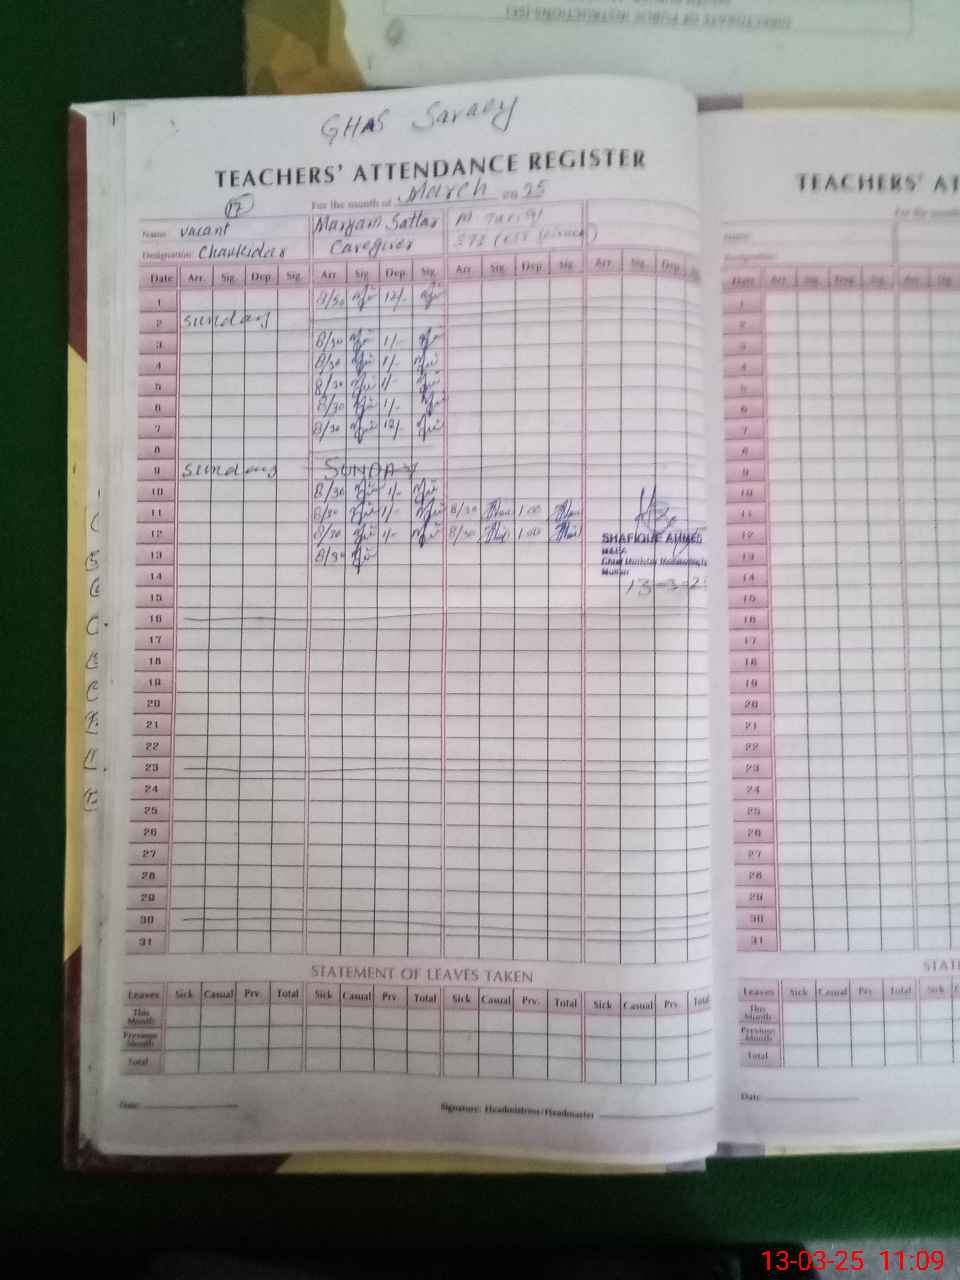 DIRECTORATE OF PUBLIC INSTRUCTIONS (SE)
GHAS Saraey
TEACHERS' ATTENDANCE REGISTER
For the month of March 2025
17
Name: vacant Maryam Sattar M Tariq
Designation: Chaukidar Caregiver
Date Arr. Sig. Dep. Sig. Arr. Sig. Dep. Sig. Arr. Sig. Dep. Sig. Arr. Sig. Dep. Sig.
1 8/30 12/-
2 sunday
3 8/30 1/-
4 8/30 1/-
5 8/30 1/-
6 8/30 1/-
7 8/30 12/-
8
9 sunday SUNDAY
10 8/30 1/-
11 8/30 1/- 8/30 1:00
12 8/30 1/- 8/30 1:00
13 8/30
SHAFIQUE AHMED
13-3-2
14
15
16
17
18
19
20
21
22
23
24
25
26
27
28
29
30
31
STATEMENT OF LEAVES TAKEN
Leaves Sick Casual Prv. Total Sick Casual Prv. Total Sick Casual Prv. Total Sick Casual Prv. Total
This Month
Previous Month
Total
Date: Signature: Headmistress/Headmaster
TEACHERS' AT
For the month
Name:
Designation:
Date Arr. Sig. Dep. Sig. Arr. Sig.
1
2
3
4
5
6
7
8
9
10
11
12
13
14
15
16
17
18
19
20
21
22
23
24
25
26
27
28
29
30
31
STATE
Leaves Sick Casual Prv. Total Sick C
This Month
Previous Month
Total
Date
13-03-25 11:09